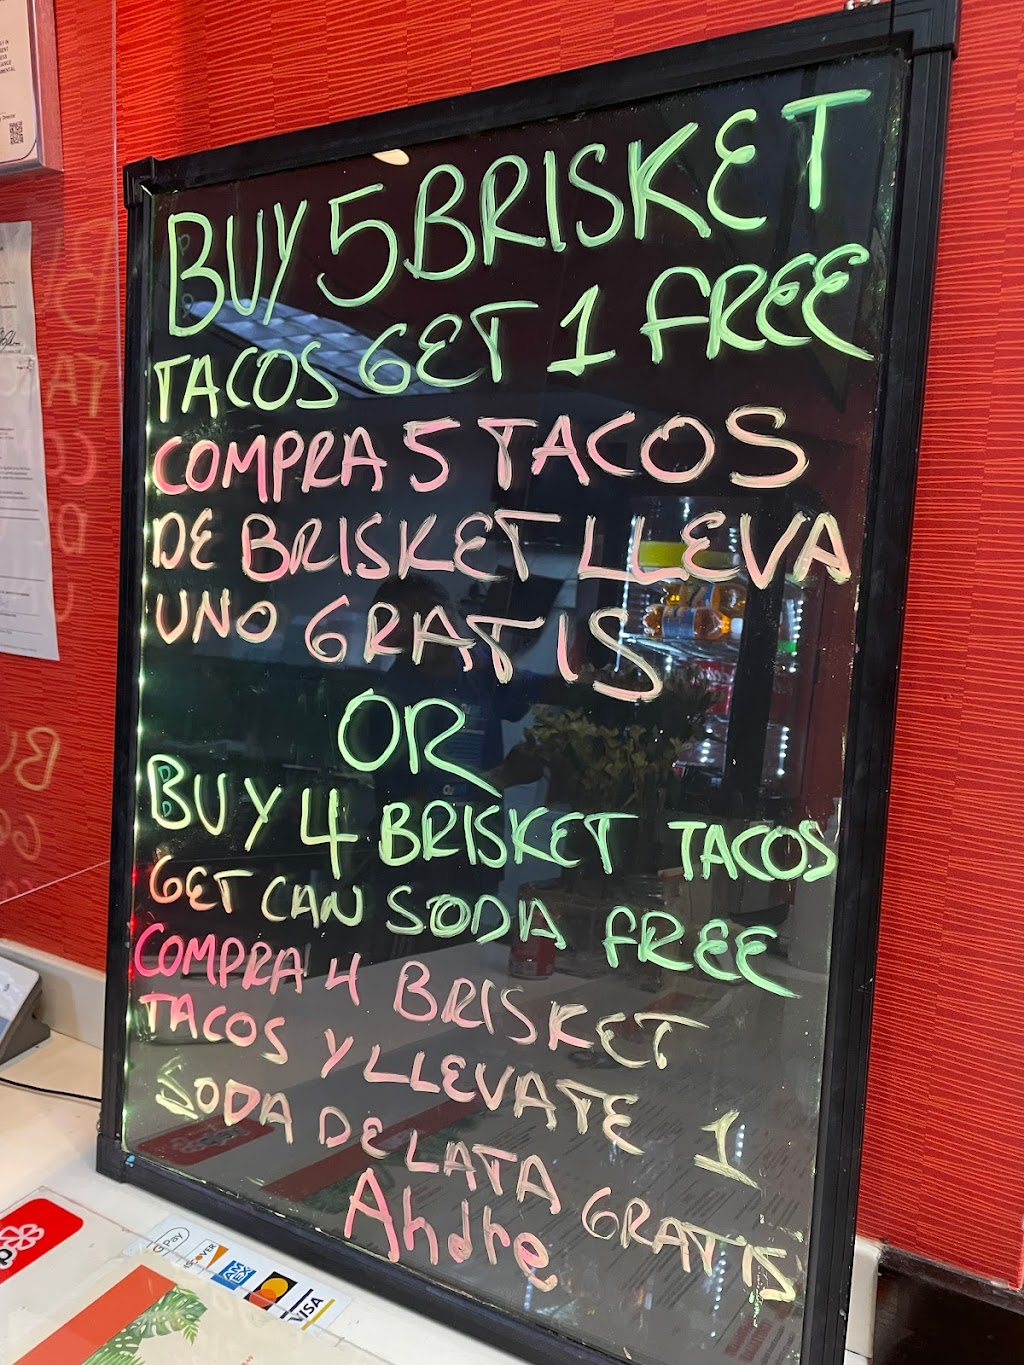 BUY 5 BRISKET
TACOS GET 1 FREE
COMPRA 5 TACOS
DE BRISKET LLEVA
UNO GRATIS
OR
BUY 4 BRISKET TACOS
GET CAN SODA FREE
COMPRA 4 BRISKET
TACOS Y LLEVATE 1
SODA DE LATA GRATIS
Andre
G Pay
DISCOVER
AM
EX
mastercard
VISA